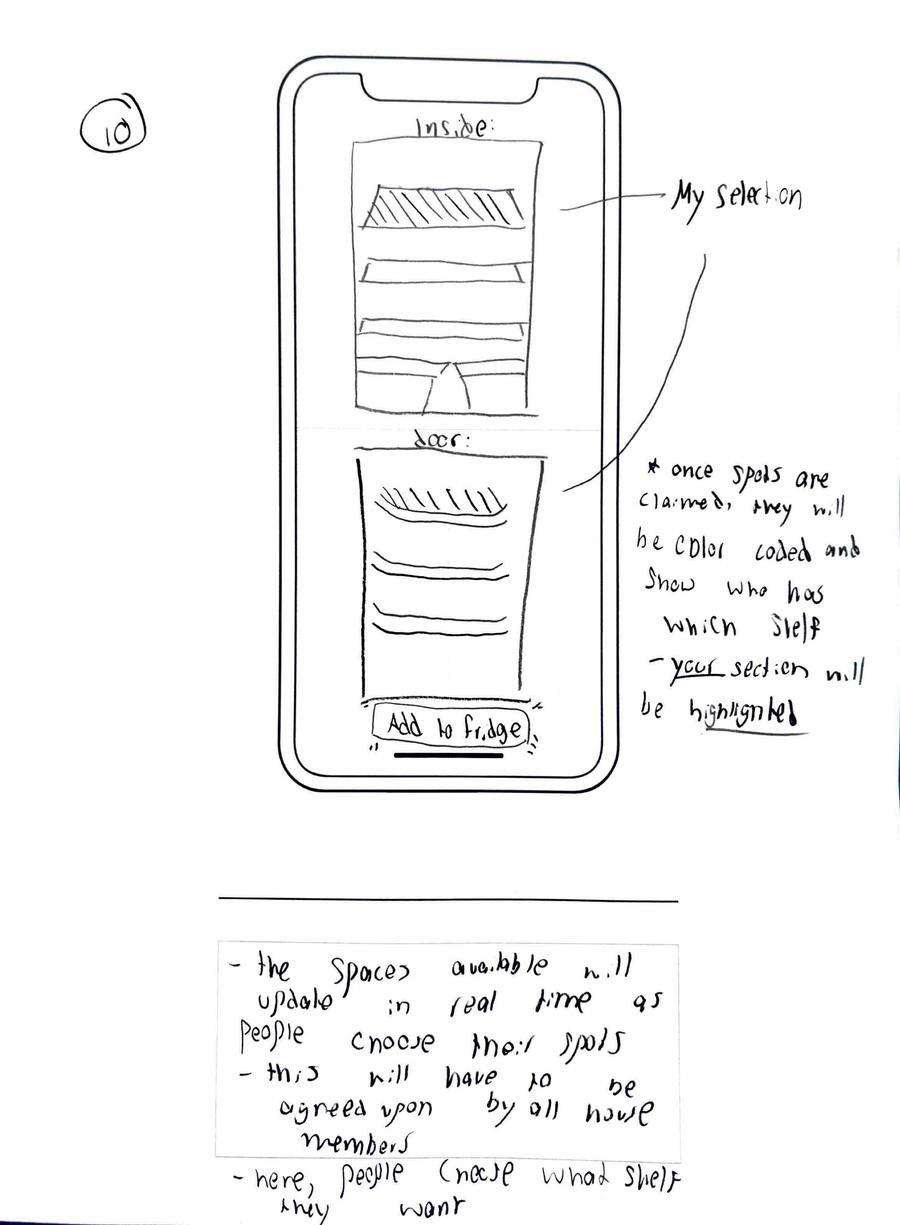 10
Inside:
My selection
door:
* once spots are
claimed, they will
be color coded and
show who has
which shelf
- your section will
be highlighted
Add to fridge
- the spaces available will
update in real time as
people choose their spots
- this will have to be
agreed upon by all house
members
- here, people choose what shelf
they want